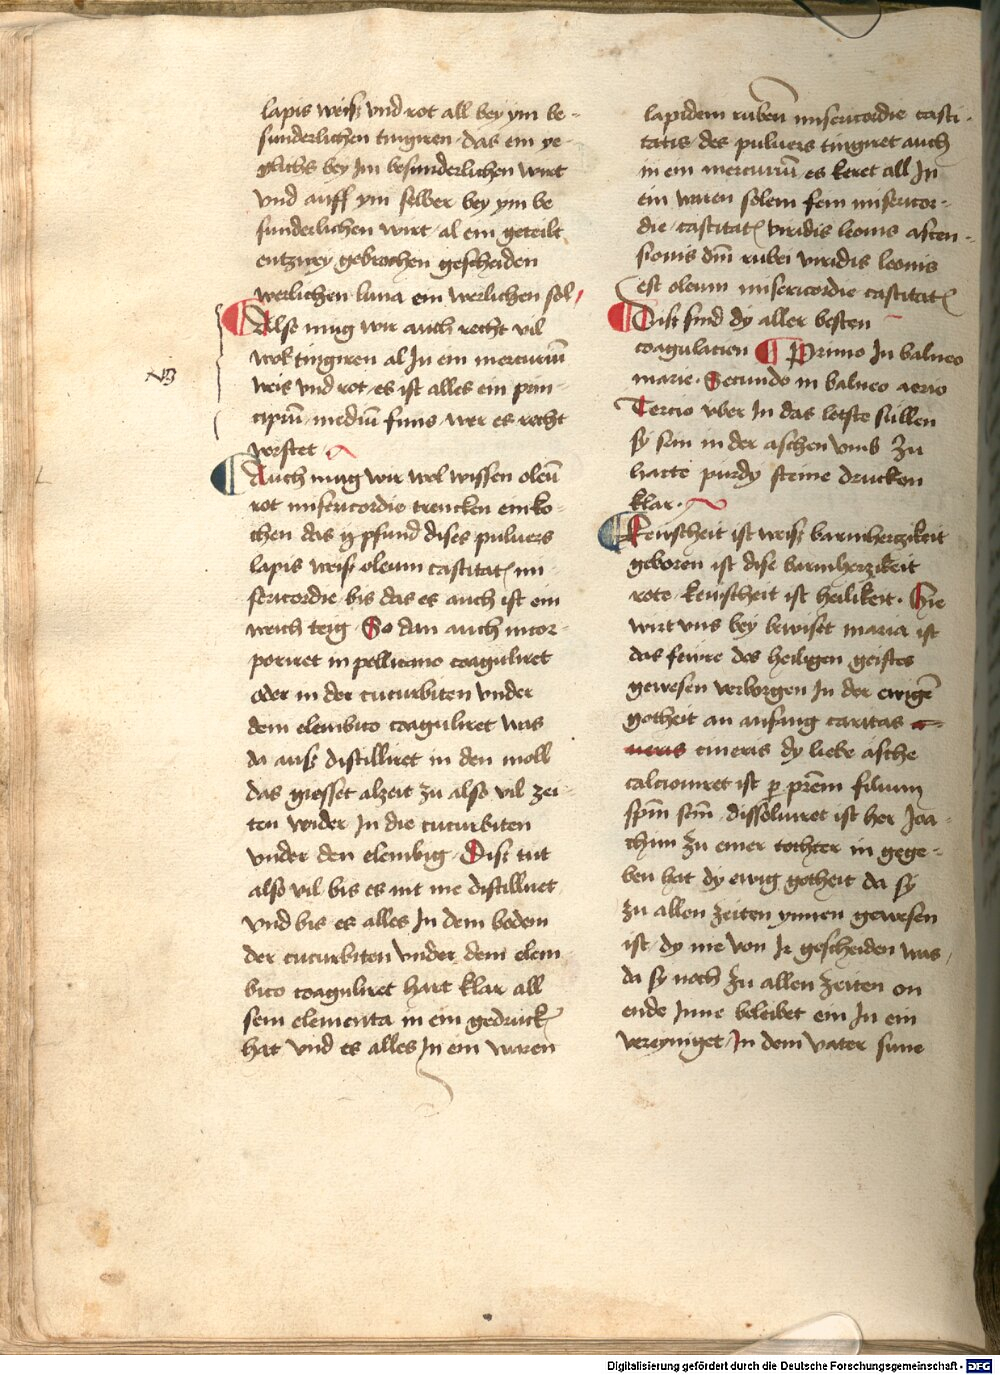 lapis weiß vnd rot all bey ym be-
sunderlichen tingiren das ein ye-
gelichs bey Im besunderlichen wirt
vnd auff ym selber bey ym be
sunderlichen wirt al ein geteilt
entzwey gebrochen gescheiden
werlichen luna ein werlichen sol
Also mug wir auch recht vil
wol tingiren al In ein mercuriū
NB
weis vnd rot es ist alles ein prin-
cipiū mediū finis wer es recht
verstet
Auch mug wir wol wissen oleū
rot misericordie trencken ein ko
chen das pfund dises puluers
lapis weiß oleum castitat mi
sericordie bis das es auch ist ein
weich teig So dan auch incor-
poriret in pellicano coaguliret
oder in der cucurbiten vnder
dem elembico coaguliret was
da auß distilliret in den moll
das giesset alzeit zu also vil zei-
ten wider In die cucurbiten
vnder den elembig Dist tut
also vil bis es nit me distilliret
vnd bis es alles In dem bodem
der cucurbiten vnder dem elem
bico coaguliret hart klar all
sein elementa in ein gedruckt
hat vnd es alles In ein waren
lapidem rubeū misericordie casti-
tatis des puluers tingiret auch
in ein mercuriū es keret all In
ein waren solem fein misericor-
die castitat viridis leonis ascen-
sionis dm̄ rubei viridis leonis
est oleum misericordie castitat
Dist sind dy aller besten
coagulacien Primo In balneo
marie Secundo in balneo aerio
Tercio vber In das letste sullen
sy sin in der aschen vnns zu
harte purdy steine drucken
klar
Keuscheit ist weiß barmherzikeit
geboren ist dise barmherzikeit
rote keuscheit ist heilikeit Hie
wirt vns bey bewiset maria ist
das feure des heiligen geistes
gewesen verborgen In der ewigē
gotheit an anfang caritas
cineris dy liebe asche
calcioniret ist p prēm filium
spm̄ sm̄ dissoluiret ist her Joa-
chim zu einer tochter in gege-
ben hat dy ewig gotheit da sy
zu allen zeiten ynnen gewesen
ist dy nie von Ir gescheiden was
da sy noch zu allen zeiten on
ende Inne beleibet ein In ein
vereyniget In dem vater sune
Digitalisierung gefördert durch die Deutsche Forschungsgemeinschaft - DFG